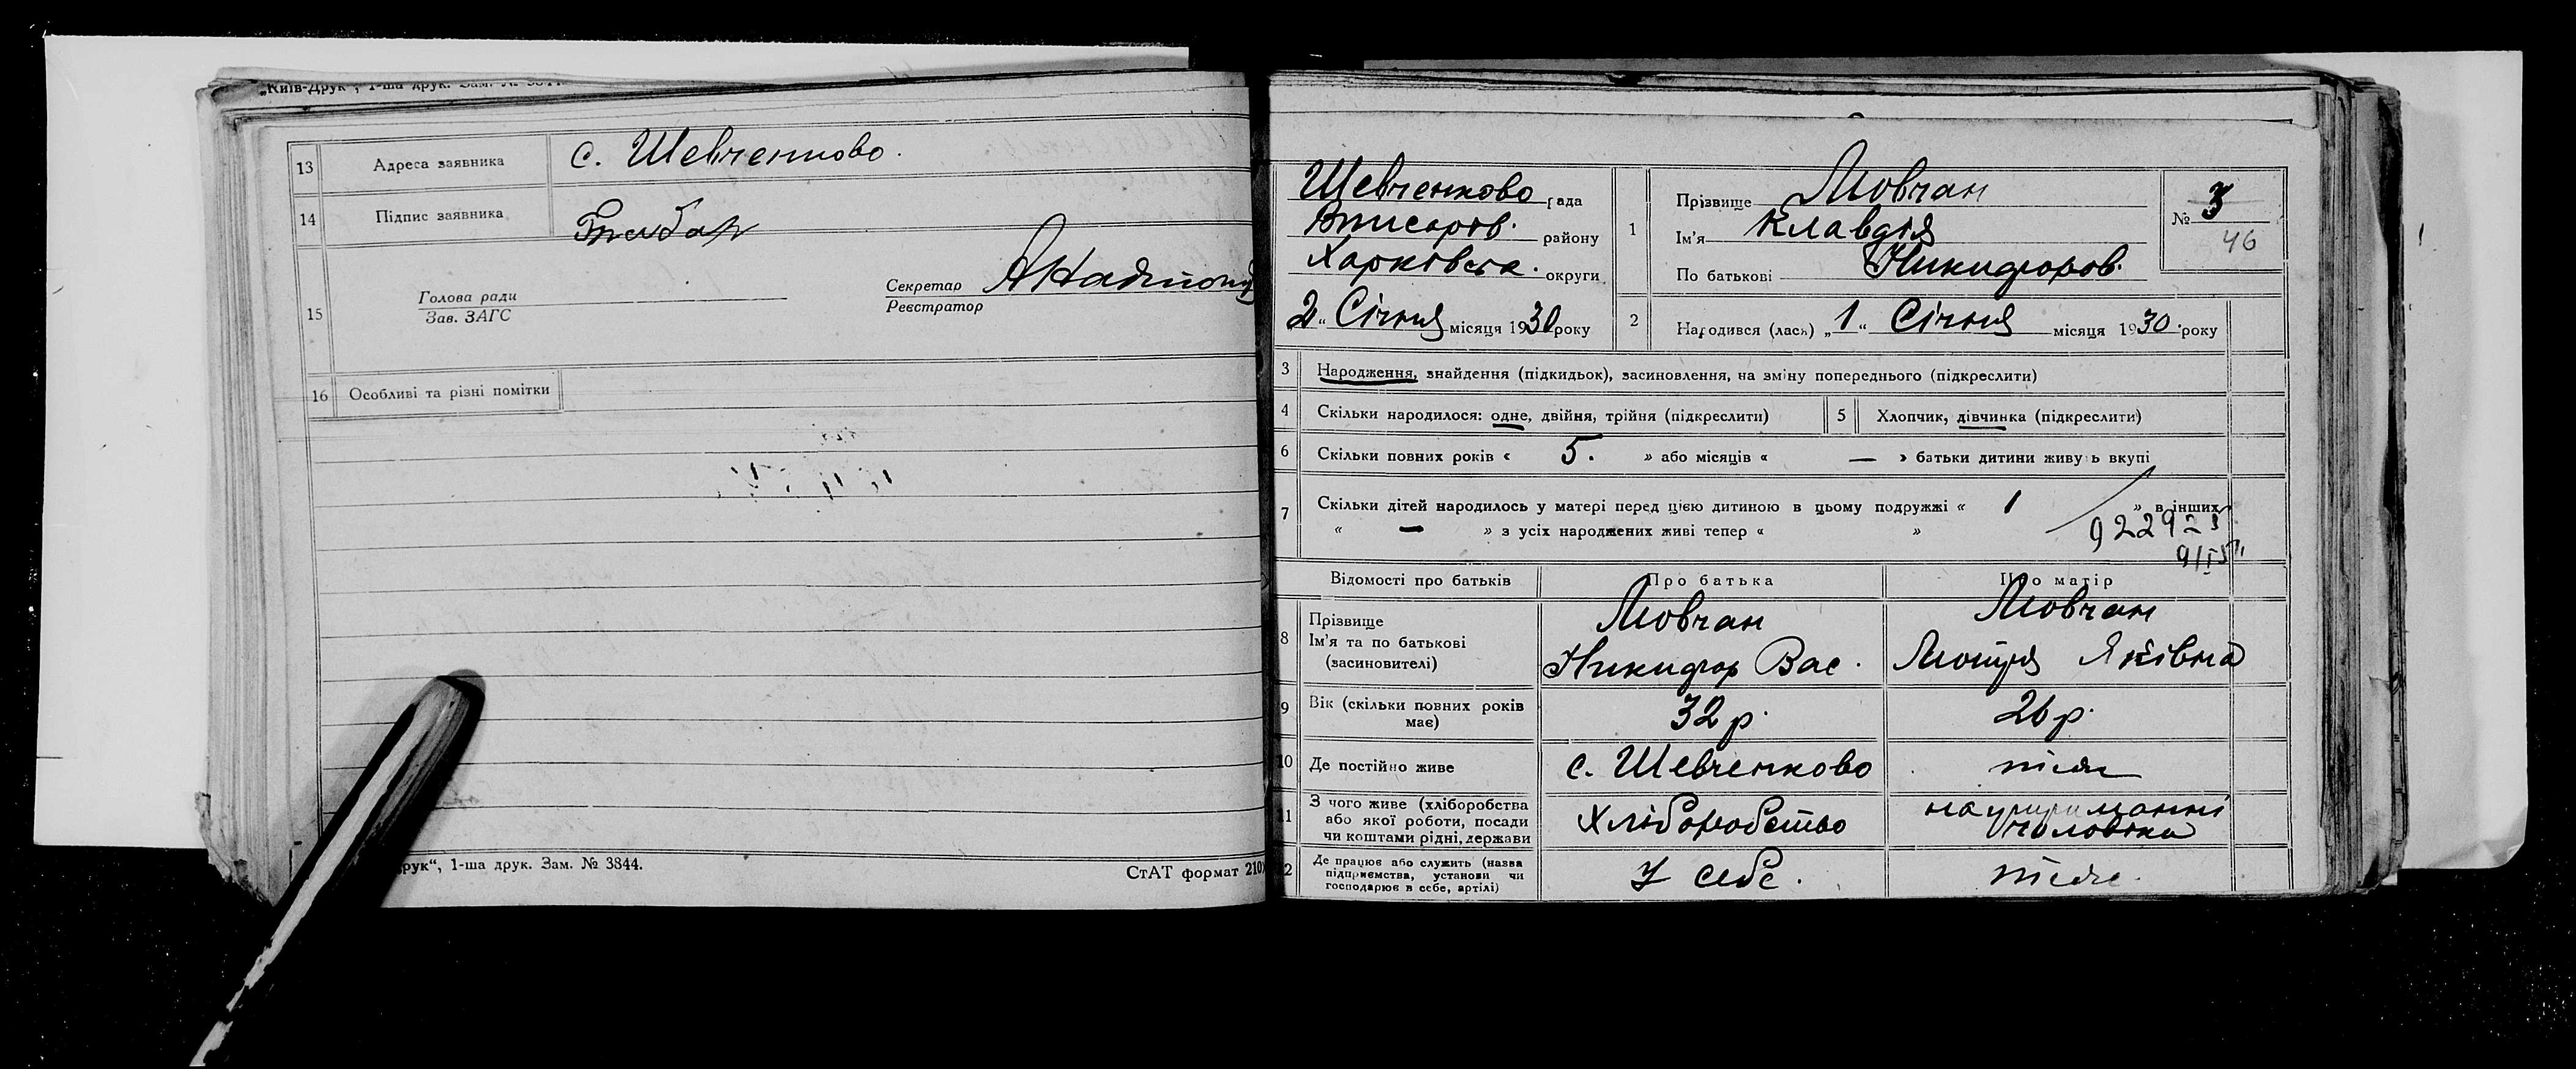 „Київ-Друк“, 1-ша друк. Зам. №
13 Адреса заявника с. Шевченково.
14 Підпис заявника
15 Голова ради
Зав. ЗАГС
Секретар
Реєстратор
16 Особливі та різні помітки
друк“, 1-ша друк. Зам. № 3844.
СтАТ формат 210
Шевченково рада
району
Харківськ. округи
2 „ Січня місяця 1930 року
1 Прізвище Мовчан
Ім'я Клавдія
По батькові Никифоров.
№ 3
46
2 Народився (лась) „ 1 “ Січня місяця 1930 року
3 Народження, знайдення (підкидьок), засиновлення, на зміну попереднього (підкреслити)
4 Скільки народилося: одне, двійня, трійня (підкреслити)
5 Хлопчик, дівчинка (підкреслити)
6 Скільки повних років « 5. » або місяців « — » батьки дитини живуть вкупі
7 Скільки дітей народилось у матері перед цією дитиною в цьому подружжі « 1 » в інших
« — » з усіх народжених живі тепер « »
Відомості про батьків Про батька Про матір
8 Прізвище
Ім'я та по батькові
(засиновителі)
Мовчан
Никифор Вас.
Мовчан
Мотря Яківна
9 Вік (скільки повних років
має)
32 р.
26 р.
10 Де постійно живе с. Шевченково
11 З чого живе (хліборобства
або якої роботи, посади
чи коштами рідні, держави
Хліборобство
на утриманні
чоловіка
12 Де працює або служить (назва
підприємства, установи чи
господарює в себе, артілі)
У себе.